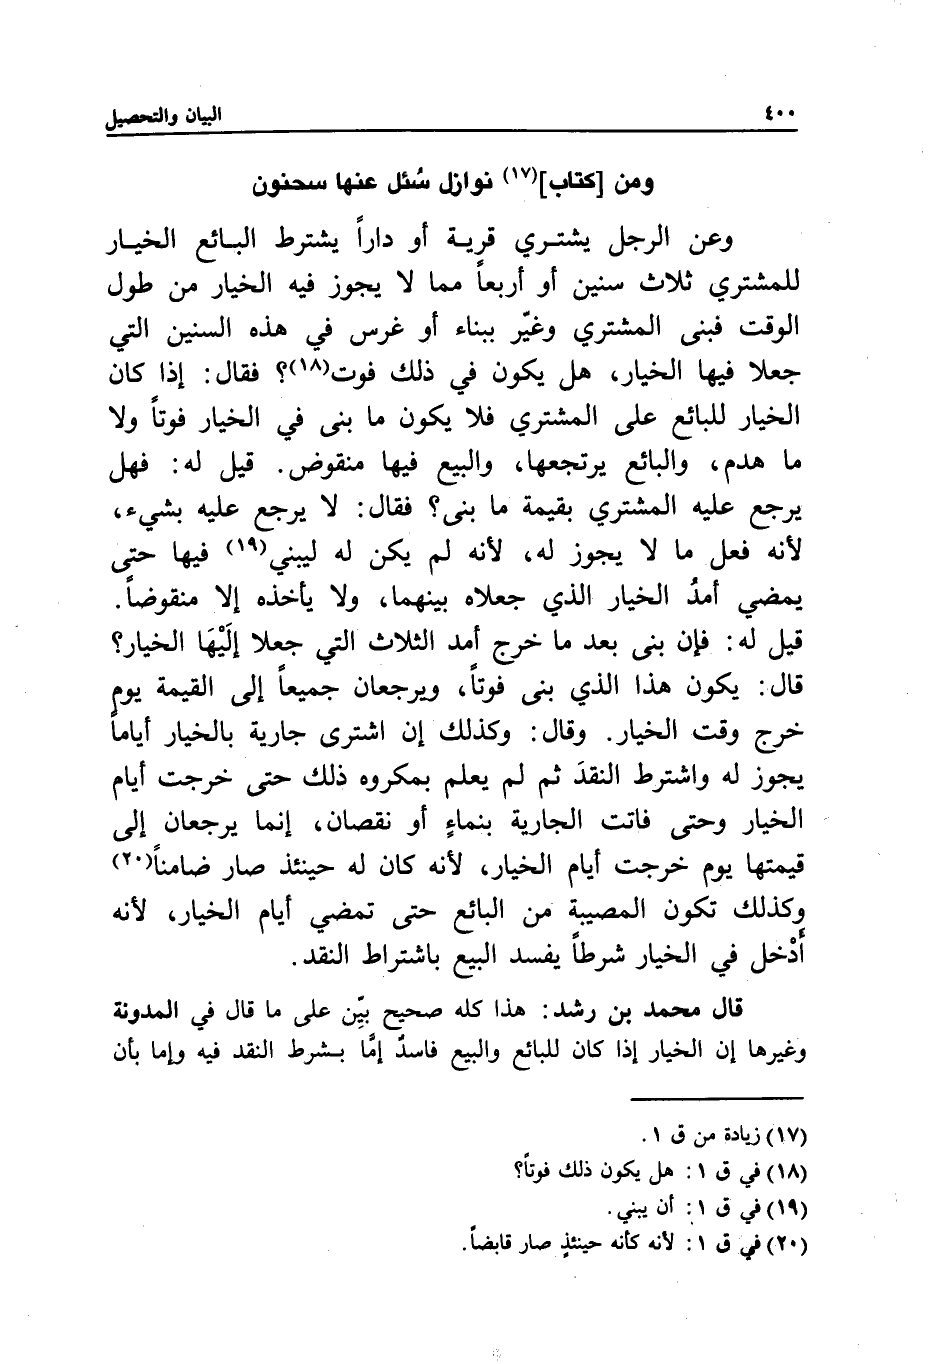 ٤٠٠ البيان والتحصيل
ومن [كتاب](١٧) نوازل سُئل عنها سحنون
وعن الرجل يشتري قرية أو داراً يشترط البائع الخيار
للمشتري ثلاث سنين أو أربعاً مما لا يجوز فيه الخيار من طول
الوقت فبنى المشتري وغيّر ببناء أو غرس في هذه السنين التي
جعلا فيها الخيار، هل يكون في ذلك فوت(١٨)؟ فقال: إذا كان
الخيار للبائع على المشتري فلا يكون ما بنى في الخيار فوتاً ولا
ما هدم، والبائع يرتجعها، والبيع فيها منقوض. قيل له: فهل
يرجع عليه المشتري بقيمة ما بنى؟ فقال: لا يرجع عليه بشيء،
لأنه فعل ما لا يجوز له، لأنه لم يكن له ليبني(١٩) فيها حتى
يمضي أمدُ الخيار الذي جعلاه بينهما، ولا يأخذه إلا منقوضاً.
قيل له: فإن بنى بعد ما خرج أمد الثلاث التي جعلا إلَيْهَا الخيار؟
قال: يكون هذا الذي بنى فوتاً، ويرجعان جميعاً إلى القيمة يوم
خرج وقت الخيار. وقال: وكذلك إن اشترى جارية بالخيار أياماً
يجوز له واشترط النقدَ ثم لم يعلم بمكروه ذلك حتى خرجت أيام
الخيار وحتى فاتت الجارية بنماءٍ أو نقصان، إنما يرجعان إلى
قيمتها يوم خرجت أيام الخيار، لأنه كان له حينئذ صار ضامناً(٢٠)
وكذلك تكون المصيبة من البائع حتى تمضي أيام الخيار، لأنه
أَدْخل في الخيار شرطاً يفسد البيع باشتراط النقد.
قال محمد بن رشد: هذا كله صحيح بيِّن على ما قال في المدونة
وغيرها إن الخيار إذا كان للبائع والبيع فاسدٌ إمَّا بشرط النقد فيه وإما بأن
(١٧) زيادة من ق ١.
(١٨) في ق ١: هل يكون ذلك فوتاً؟
(١٩) في ق ١: أن يبني.
(٢٠) في ق ١: لأنه كأنه حينئذٍ صار قابضاً.